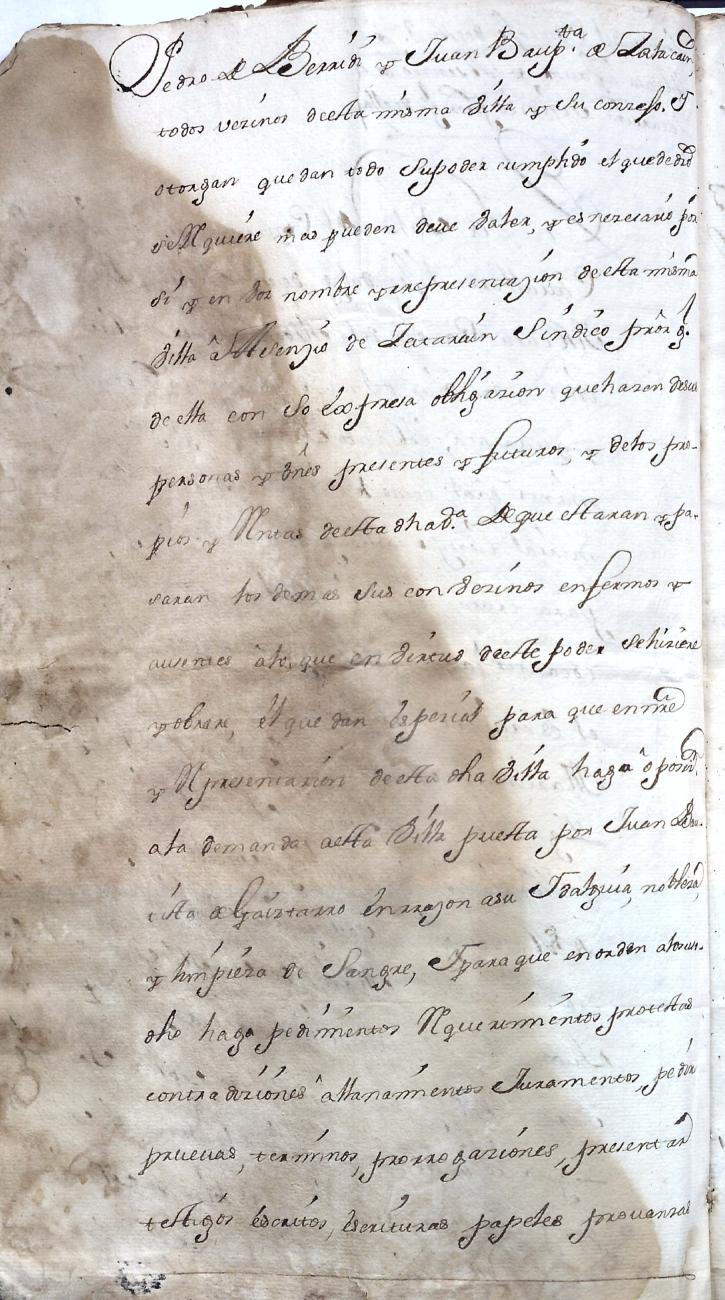 Pedro de Berridi y Juan Baup.ta de
todos vezinos de esta misma Villa y su conzejo. I
otorgan que dan todo su poder cumplido el que de dro
se Requiere mas pueden deve valer, y es nezesario por
si y en voz nombre y rrepresentazion de esta misma
Villa â Asenzio de Zararain Sindico prôr g.l
de ella con so expresa obligazion que hazen de sus
personas y vnês presentes y futuros, y de los pro-
pios y Rentas de esta dha v.a de que estaran y pa-
saran los demas sus convezinos enfermos y
ausentes â lo que en virtud de este poder se hiziere
y obrare, el que dan espezial para que en nrê
y Representazion de esta dha Villa haga ôposiz.n
a la demanda a esta Villa puesta por Juan Bau-
tista de Gaiztarro en rrazon a su Idalguia, nobleza,
y limpieza de Sangre, I para que en orden a lo suso-
dho haga pedimentos Requerimentos protestas
contradiziones âllanamientos Juramentos, pedir
pruevas, terminos, prorrogaziones, presentar
testigos escritos, escrituras papeles provanzas